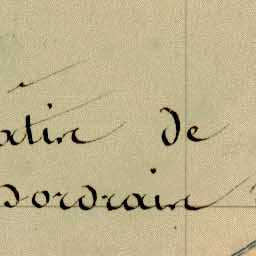 atin de
Dordrain